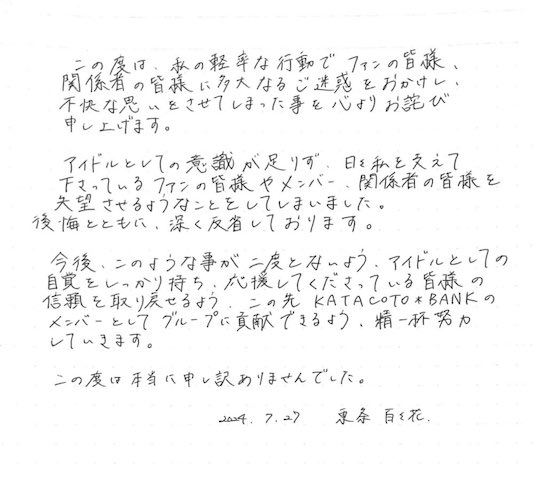 この度は、私の軽率な行動で ファンの皆様、
関係者の皆様に多大なるご迷惑をおかけし、
不快な思いをさせてしまった事を心よりお詫び
申し上げます。
アイドルとしての意識が足りず、日々私を支えて
下さっているファンの皆様やメンバー、関係者の皆様を
失望させるようなことをしてしまいました。
後悔とともに、深く反省しております。
今後、このような事が二度とないよう、アイドルとしての
自覚をしっかり持ち、応援してくださっている皆様の
信頼を取り戻せるよう、この先 KATACOTO*BANKの
メンバーとしてグループに貢献できるよう、精一杯努力
していきます。
この度は本当に申し訳ありませんでした。
2024.7.27 東条 百々花.